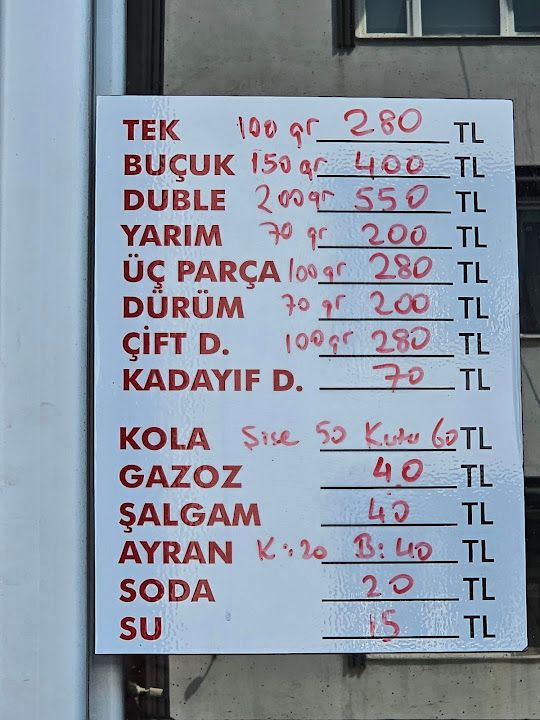 TEK 100 gr 280 TL
BUÇUK 150 gr 400 TL
DUBLE 200 gr 550 TL
YARIM 70 gr 200 TL
ÜÇ PARÇA 100 gr 280 TL
DÜRÜM 70 gr 200 TL
ÇİFT D. 100 gr 280 TL
KADAYIF D. 70 TL
KOLA Şise 50 Kutu 60 TL
GAZOZ 40 TL
ŞALGAM 40 TL
AYRAN K:20 B:40 TL
SODA 20 TL
SU 15 TL